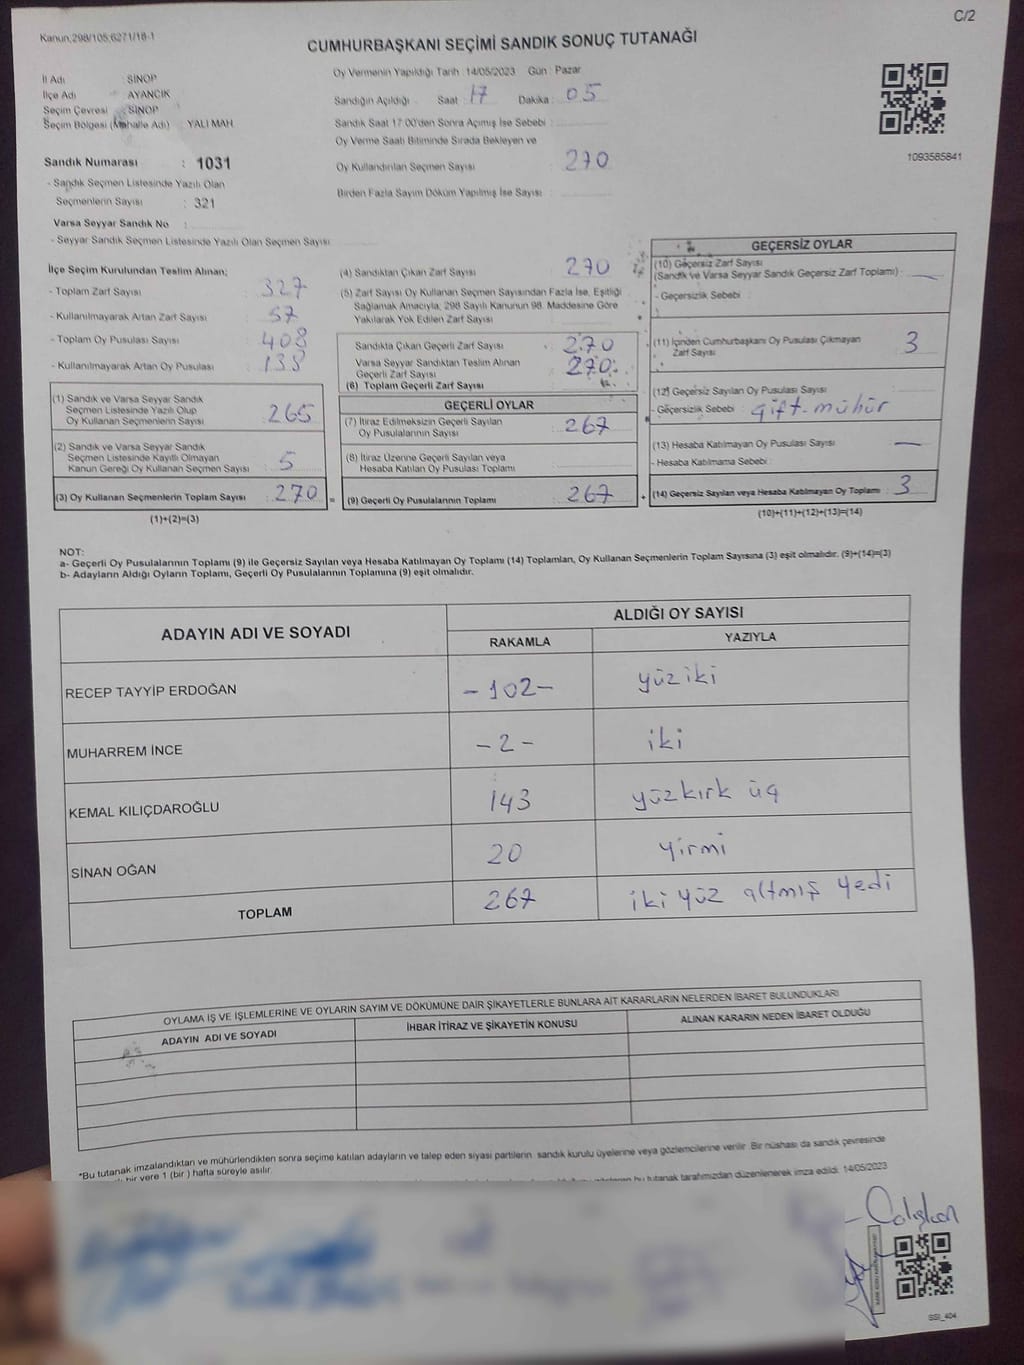 C/2
Kanun;298/105;6271/18-1
CUMHURBAŞKANI SEÇİMİ SANDIK SONUÇ TUTANAĞI
İl Adı : SİNOP
İlçe Adı : AYANCIK
Seçim Çevresi : SİNOP
Seçim Bölgesi (Mahalle Adı) YALI MAH.
Sandık Numarası : 1031
- Sandık Seçmen Listesinde Yazılı Olan
Seçmenlerin Sayısı : 321
Varsa Seyyar Sandık No :
- Seyyar Sandık Seçmen Listesinde Yazılı Olan Seçmen Sayısı
Oy Vermenin Yapıldığı Tarih :14/05/2023 Gün : Pazar
Sandığın Açıldığı Saat : 17 Dakika : 05
Sandık Saat 17:00'den Sonra Açımış İse Sebebi :
Oy Verme Saati Bitiminde Sırada Bekleyen ve
Oy Kullandırılan Seçmen Sayısı : 270
Birden Fazla Sayım Döküm Yapılmış İse Sayısı :
1093585841
İlçe Seçim Kurulundan Teslim Alınan;
- Toplam Zarf Sayısı : 327
- Kullanılmayarak Artan Zarf Sayısı : 57
- Toplam Oy Pusulası Sayısı : 408
- Kullanılmayarak Artan Oy Pusulası : 138
(1) Sandık ve Varsa Seyyar Sandık
Seçmen Listesinde Yazılı Olup
Oy Kullanan Seçmenlerin Sayısı : 265
(2) Sandık ve Varsa Seyyar Sandık
Seçmen Listesinde Kayıtlı Olmayan
Kanun Gereği Oy Kullanan Seçmen Sayısı : 5
(3) Oy Kullanan Seçmenlerin Toplam Sayısı : 270 =
(1)+(2)=(3)
(4) Sandıktan Çıkan Zarf Sayısı : 270
(5) Zarf Sayısı Oy Kullanan Seçmen Sayısından Fazla İse, Eşitliği
Sağlamak Amacıyla, 298 Sayılı Kanunun 98. Maddesine Göre
Yakılarak Yok Edilen Zarf Sayısı :
Sandıkta Çıkan Geçerli Zarf Sayısı : 270
Varsa Seyyar Sandıktan Teslim Alınan
Geçerli Zarf Sayısı
(6) Toplam Geçerli Zarf Sayısı : 270
GEÇERLİ OYLAR
(7) İtiraz Edilmeksizin Geçerli Sayılan
Oy Pusulalarının Sayısı : 267
(8) İtiraz Üzerine Geçerli Sayılan veya
Hesaba Katılan Oy Pusulası Toplamı :
(9) Geçerli Oy Pusulalarının Toplamı : 267 +
GEÇERSİZ OYLAR
(10) Geçersiz Zarf Sayısı
(Sandık ve Varsa Seyyar Sandık Geçersiz Zarf Toplamı) : —
- Geçersizlik Sebebi :
(11) İçinden Cumhurbaşkanı Oy Pusulası Çıkmayan
Zarf Sayısı : 3
(12) Geçersiz Sayılan Oy Pusulası Sayısı :
- Geçersizlik Sebebi : çift-mühür
(13) Hesaba Katılmayan Oy Pusulası Sayısı : —
- Hesaba Katılmama Sebebi :
(14) Geçersiz Sayılan veya Hesaba Katılmayan Oy Toplamı : 3
(10)+(11)+(12)+(13)=(14)
NOT:
a- Geçerli Oy Pusulalarının Toplamı (9) ile Geçersiz Sayılan veya Hesaba Katılmayan Oy Toplamı (14) Toplamları, Oy Kullanan Seçmenlerin Toplam Sayısına (3) eşit olmalıdır. (9)+(14)=(3)
b- Adayların Aldığı Oyların Toplamı, Geçerli Oy Pusulalarının Toplamına (9) eşit olmalıdır.
ADAYIN ADI VE SOYADI
ALDIĞI OY SAYISI
RAKAMLA YAZIYLA
RECEP TAYYİP ERDOĞAN -102- yüziki
MUHARREM İNCE -2- iki
KEMAL KILIÇDAROĞLU 143 yüzkırk üç
SİNAN OĞAN 20 yirmi
TOPLAM 267 iki yüz altmış yedi
OYLAMA İŞ VE İŞLEMLERİNE VE OYLARIN SAYIM VE DÖKÜMÜNE DAİR ŞİKAYETLERLE BUNLARA AİT KARARLARIN NELERDEN İBARET BULUNDUKLARI
ADAYIN ADI VE SOYADI İHBAR İTİRAZ VE ŞİKAYETİN KONUSU ALINAN KARARIN NEDEN İBARET OLDUĞU
*Bu tutanak imzalandıktan ve mühürlendikten sonra seçime katılan adayların ve talep eden siyasi partilerin sandık kurulu üyelerine veya gözlemcilerine verilir. Bir nüshası da sandık çevresinde
bir yere 1 (bir ) hafta süreyle asılır.
bu tutanak tarafımızdan düzenlenerek imza edildi. 14/05/2023
Çalışkan
SSİ_404